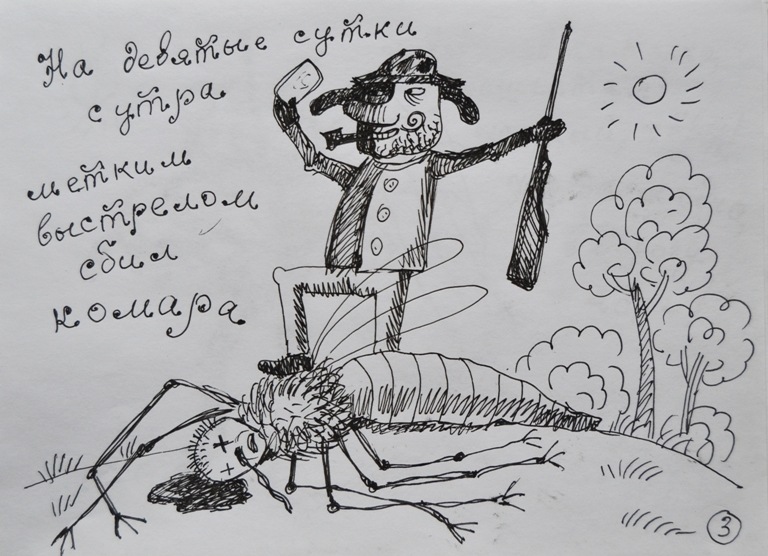 На девятые сутки
с утра
метким
выстрелом
сбил
комара
3